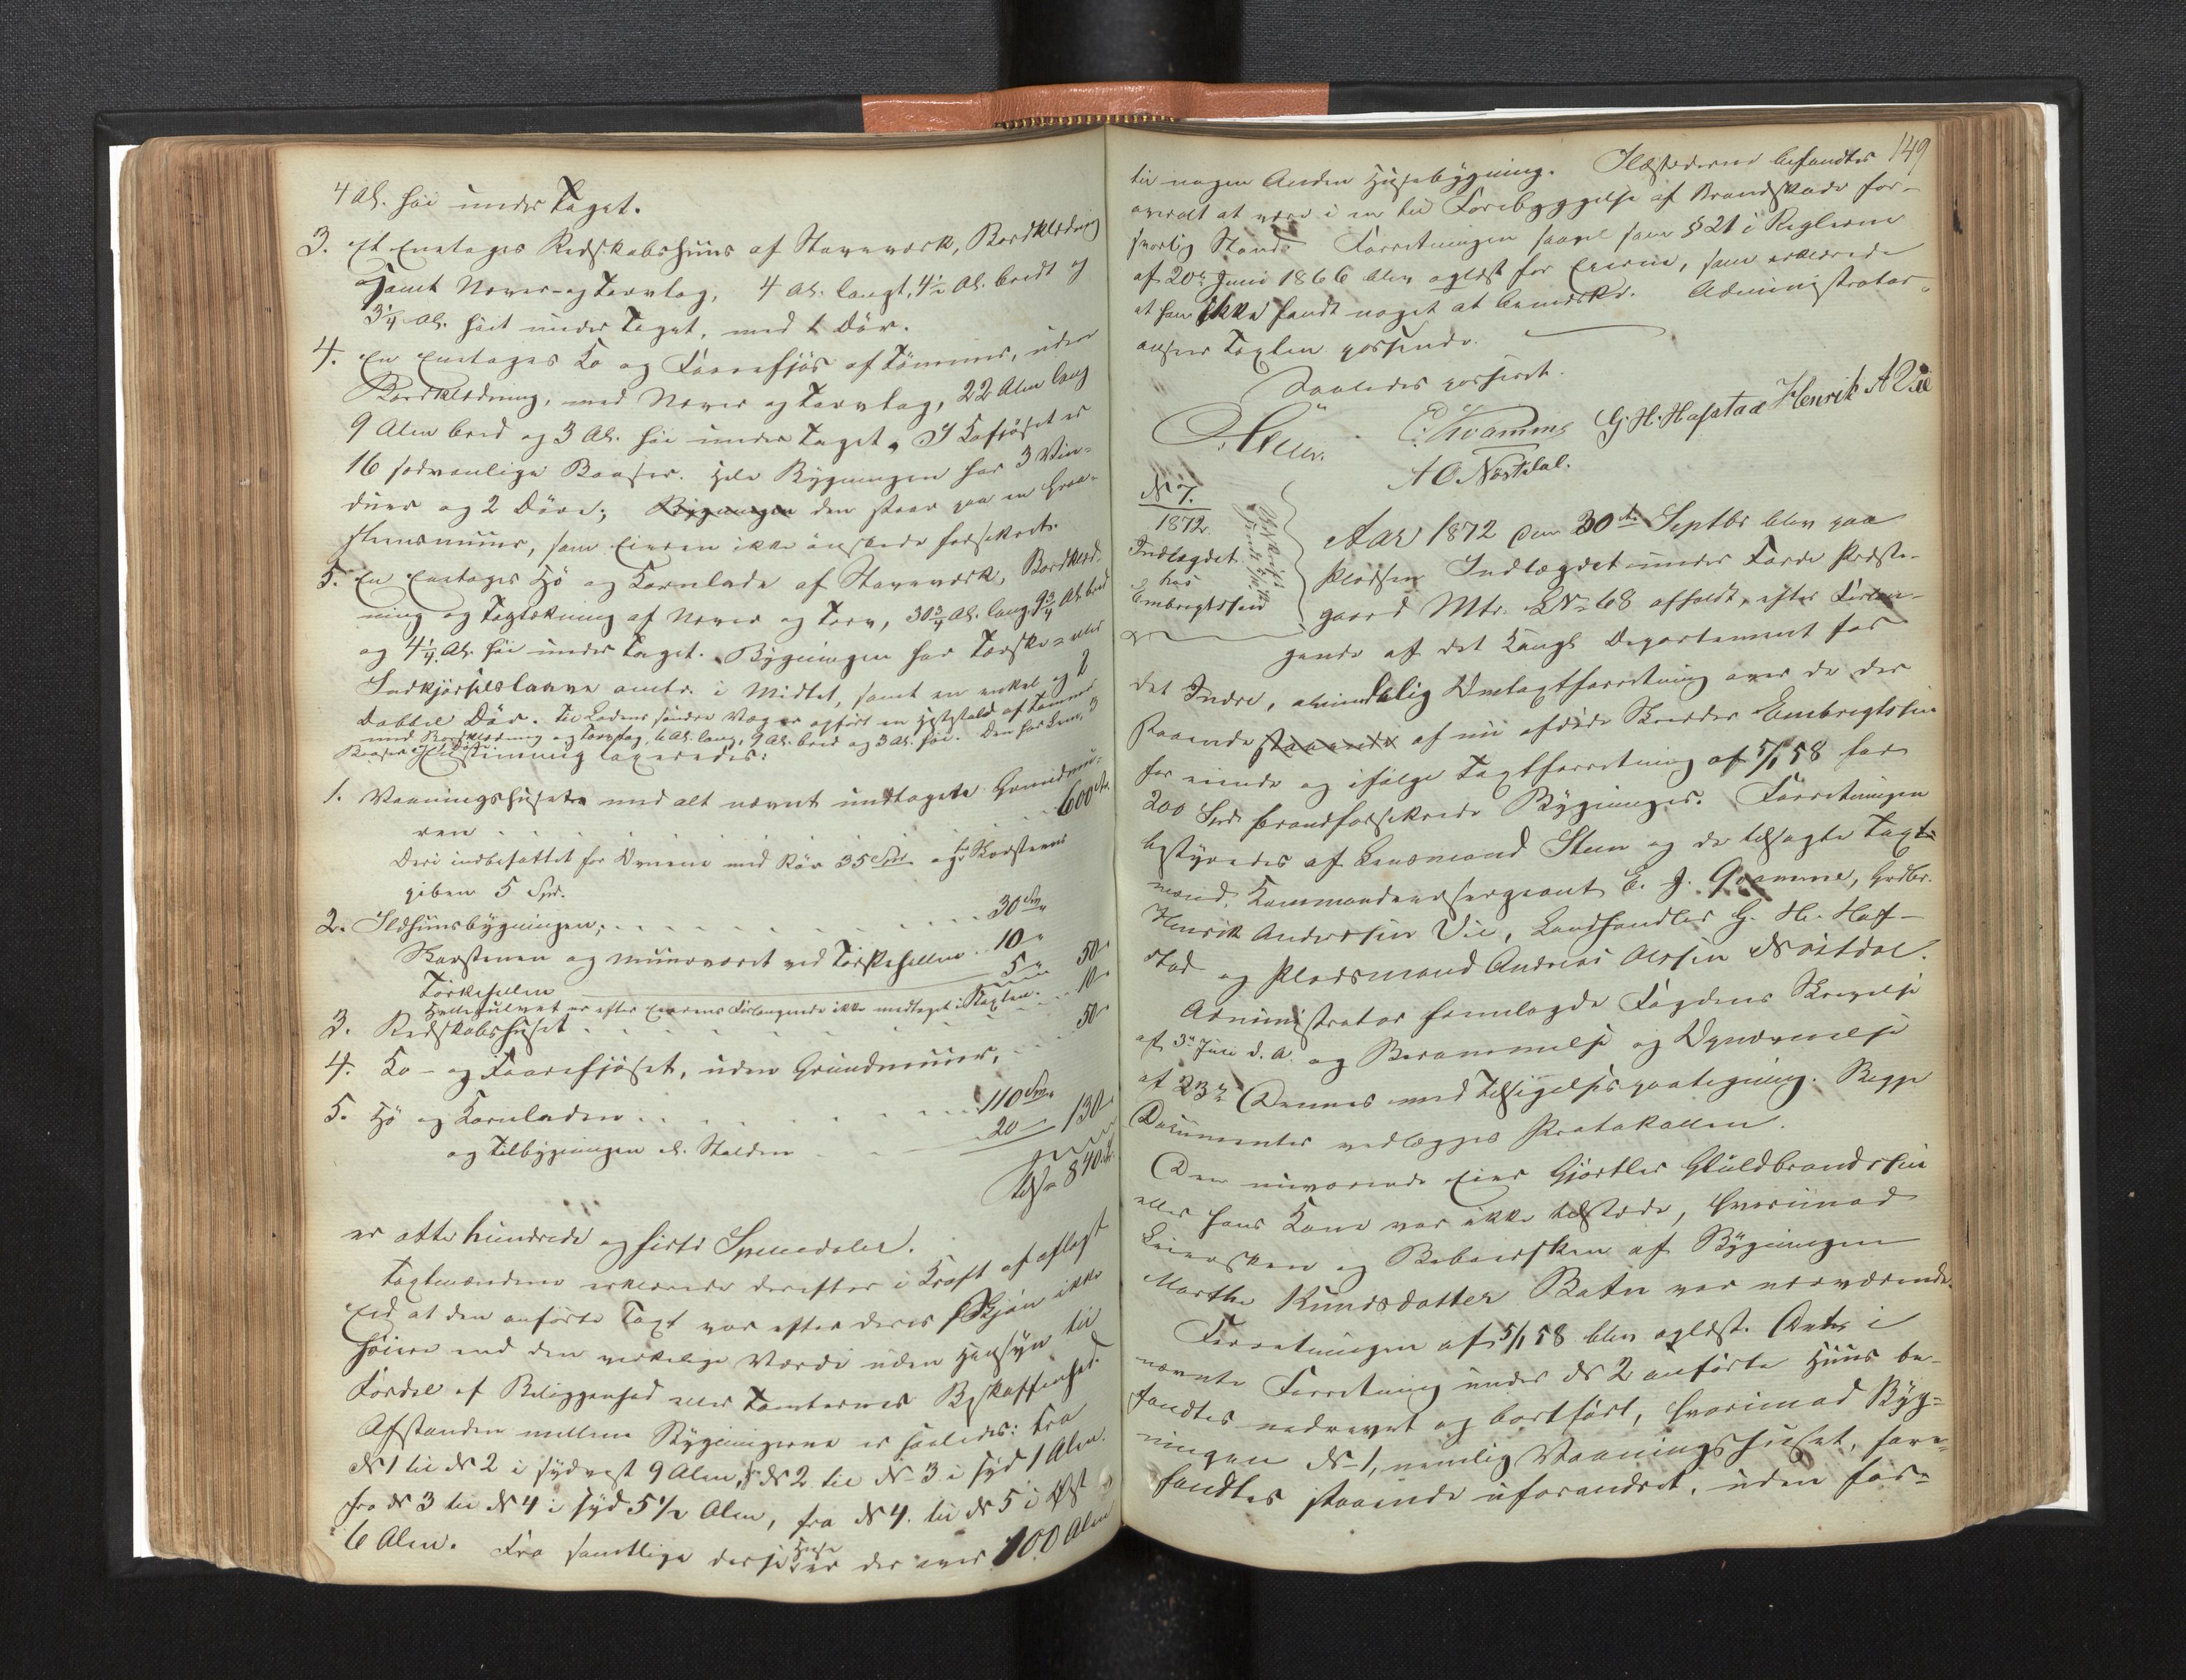 4 Al. høi under Taget.
3. Et Enetages Redskabshuus af Stavværk, Bordklædning
samt Næver- og Torvtag, 4 Al. langt, 4½ Al. bredt og
3¼ Al. høit under Taget, med 1 Dör.
4. En Enetages Ko og Faarefjös af Tömmer, uden
Bordklædning, med Næver og Torvtag, 22 Alen lang
9 Alen bred og 3 Al. høi under Taget. I Kofjöset er
16 sædvanlige Baaser. Hele Bygningen har 3 Vin-
duer og 2 Döre; Bygningen den staar paa en Graa-
steensmuur, som Eieren ikke önskede forsikret.
5. En Enetages Hö og Kornlade af Stavværk, Bordklæd-
ning og Tagtækning af Næver og Torv, 30¾ Al. lang, 9¾ Al. bred
og 4¼ Al. høi under Taget. Bygningen har Tærske- eller
Indkjörselslaave omtr. i Midten, samt en enkel og 2
Dobbel Dör. Til Ladens söndre Væg er opfört en Hestestald af Tömmer
med Bordklædning og Torvtag, 6 Al. lang, 9 Al. bred og 3 Al. høi. Den har Lem, 3
Baaser og 1 Dör. stemmig taxeredes:
1. Vaaningshuset med alt nævnt undtagen Grundmu-
ren . . . . . . 600 Spd.
Deri indbefattet for Ovnene med Rör 35 Spd og for Skorsteens
piben 5 Spd.
2. Ildhuusbygningen, . . . . . 30 Spd
Skorstenen og Muurværet ved Törkehellen . . 10 "
Törkehellen 5 " 50 "
Hellegulvet er efter Eierens Forlangende ikke medtaget i Taxten.
3. Redskabshuset . . . . . 10 "
4. Ko- og Faarefjöset, uden Grundmuur, . . . 50 "
5. Hö og Kornladen . . . . . 110 Spd.
og Tilbygningen el. Stalden . . . 20 " 130 "
Tils. 840 Spd.
er otte hundrede og firti Speciedaler.
Taxtmændene erklærede derefter i Kraft af aflagt
Eed at den anförte Taxt var efter deres Skjön ikke
höiere end den virkelige Værdi uden Hensyn til
Fordel af Beliggenhed eller Tomternes Beskaffenhed.
Afstanden mellem Bygningerne er saaledes: Fra
No 1 til No 2 i sydvest 9 Alen, fr. No 2 til No 3 i syd 1 Alen.
fra No 3 til No 4 i syd 5½ Alen, fra No 4. til No 5 i Øst
6 Alen. Fra samtlige disse Huse er der over 100 Alen
149
til nogen Anden Husebygning. Ildstederne befandtes
overalt at være i en til Forebyggelse af Brandskade for-
svarlig Stand. Forretningen saavel som § 21 i Reglerne
af 20de Juni 1866 blev oplæst for Eieren, som erklærede
at han ikke fandt noget at bemærke. Administrator
anser Taxten passende.
Saaledes passeret.
Steen. E. Kvamme G. H. Hafstad Henrik A Vie
A O Nöstdal.
No 7.
1872.
Indlægdet
hos
Embregtssen
Aar 1872 den 30te Septbr blev paa
Pladsen Indlægdet under Förde Præste-
gaard Mtr. L No 68 afholdt, efter Forlan-
gende af det Kongl Departement for
det Indre, almindelig Omtaxtforretning over de der
staaende staaende af nu afdöde Skrædder Embregtssen
for eiende og ifölge Taxtforretning af 5/1 58 for
200 Spd brandforsikrede Bygninger. Forretningen
bestyredes af Lensmand Steen og de tilsagte Taxt-
mænd. Kommandeersergeant E. J. Qvamme, Grdbr.
Henrik Anderssen Vie, Landhandler G. H. Haf-
stad og Pladsmand Andreas Olssen Nöstdal.
Administrator fremlagde Fogdens Skrivelse
af 3de Juni d. A. og Berammelse og Opnævnelse
af 23de Dennes med Tilsigelsespaategning. Begge
Documenter vedlægges Protokollen.
Den nuværende Eier Gjörtler Guldbrandsen
eller hans Kone var ikke tilstede, hvorimod
Leiersken og Beboersken af Bygningen
Marthe Knudsdatter Batn var nærværende.
Forretningen af 5/1 58 blev oplæst. Det i
nævnte Forretning under No 2 anförte Huus be-
fandtes nedrevet og bortfört, hvorimod Byg-
ningen No 1, nemlig Vaaningshuset, fore-
fandtes staaende uforandret, uden for-